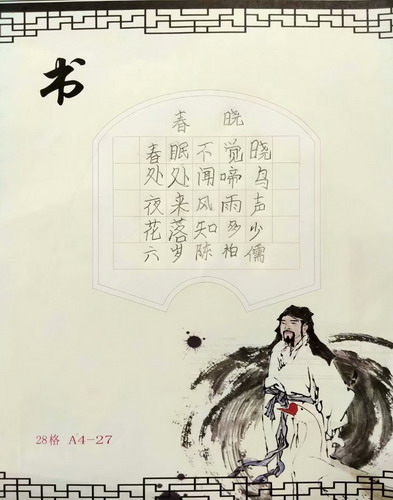 书
春晓
春眠不觉晓
处处闻啼鸟
夜来风雨声
花落知多少
六岁陈柏儒
28格 A4-27